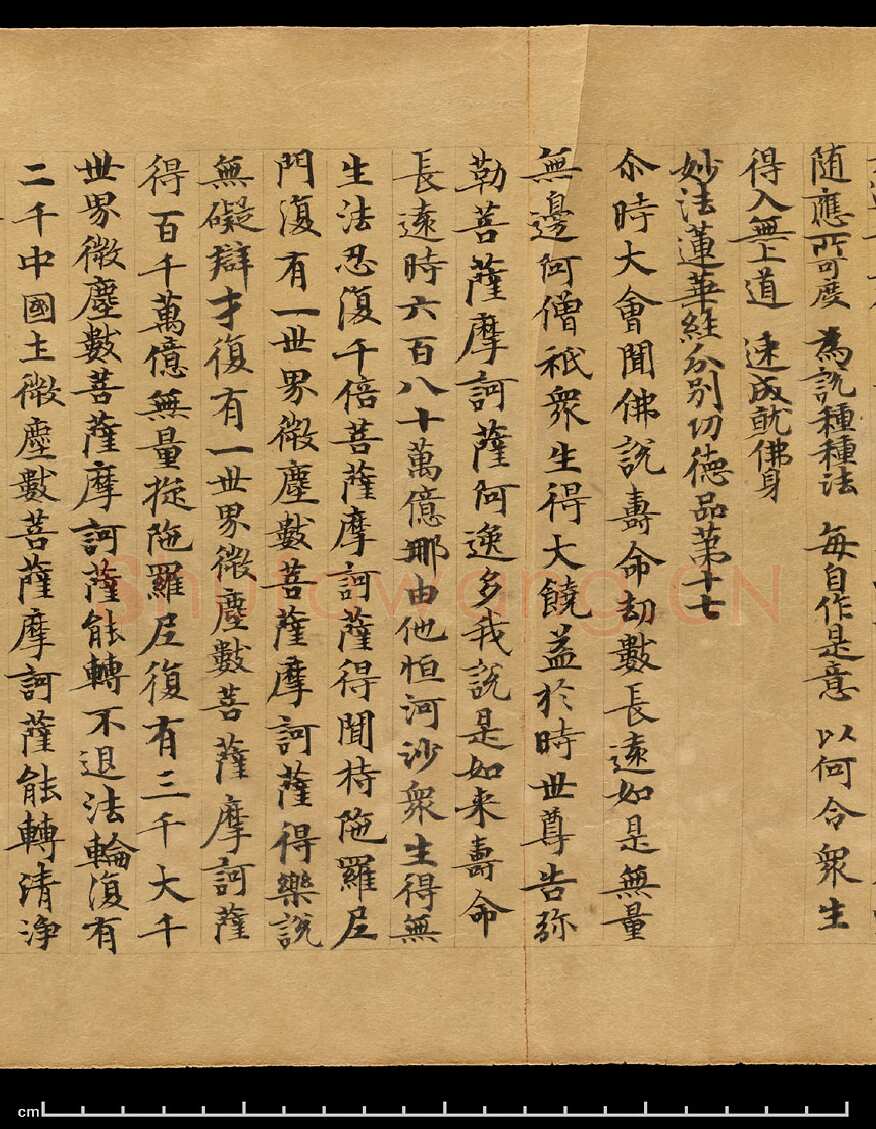 随應所可度 為說種種法 每自作是意 以何令衆生
得入無上道 速成就佛身
妙法蓮華經分別功德品第十七
尒時大會聞佛說壽命劫數長遠如是無量
無邊阿僧祇衆生得大饒益於時世尊告弥
勒菩薩摩訶薩阿逸多我說是如来壽命
長遠時六百八十萬億那由他恒河沙衆生得無
生法忍復千倍菩薩摩訶薩得聞持陁羅尼
門復有一世界微塵數菩薩摩訶薩得樂說
無礙辯才復有一世界微塵數菩薩摩訶薩
得百千萬億無量旋陁羅尼復有三千大千
世界微塵數菩薩摩訶薩能轉不退法輪復有
二千中國土微塵數菩薩摩訶薩能轉清淨
Shufawang.CN
cm